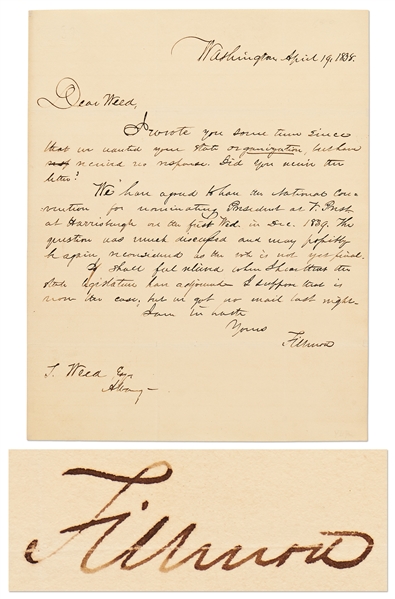 Washington April 19, 1838.
Dear Weed,
I wrote you some time since
that we wanted your state organization, but have
received no response. Did you receive the
letter?
We have agreed to have the National Con-
vention for nominating President & V. Prest.
at Harrisburgh on the first Wed. in Dec. 1839. The
question was much discussed and may possibly
be again reconsidered as the vote is not yet final.
I shall feel relieved when I hear that the
state legislature has adjourned. I suppose that is
now the case, but we got no mail last night.
I am in haste
Yours
Fillmore
T. Weed Esqr
Albany
Fillmore